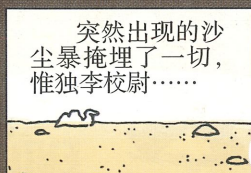 突然出现的沙
尘暴掩埋了一切，
惟独李校尉……